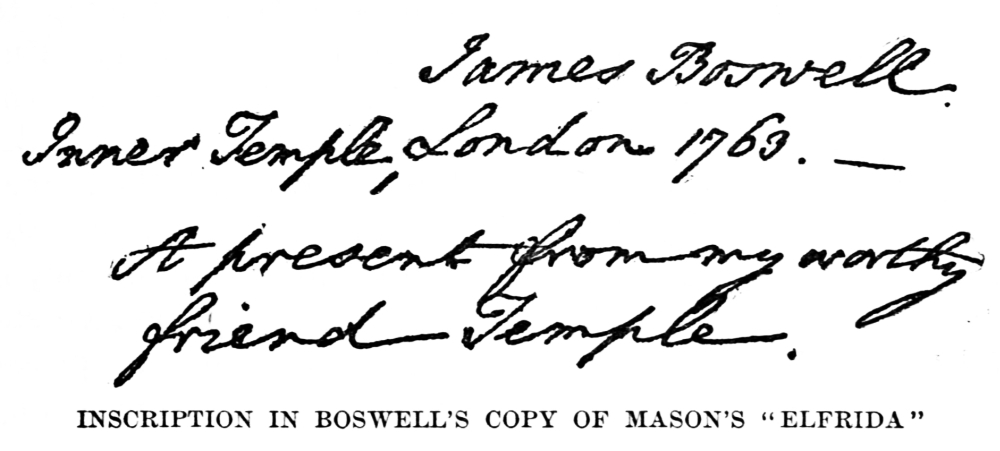 James Boswell.
Inner Temple, London 1763. —
A present from my worthy
friend Temple.
INSCRIPTION IN BOSWELL'S COPY OF MASON'S "ELFRIDA"